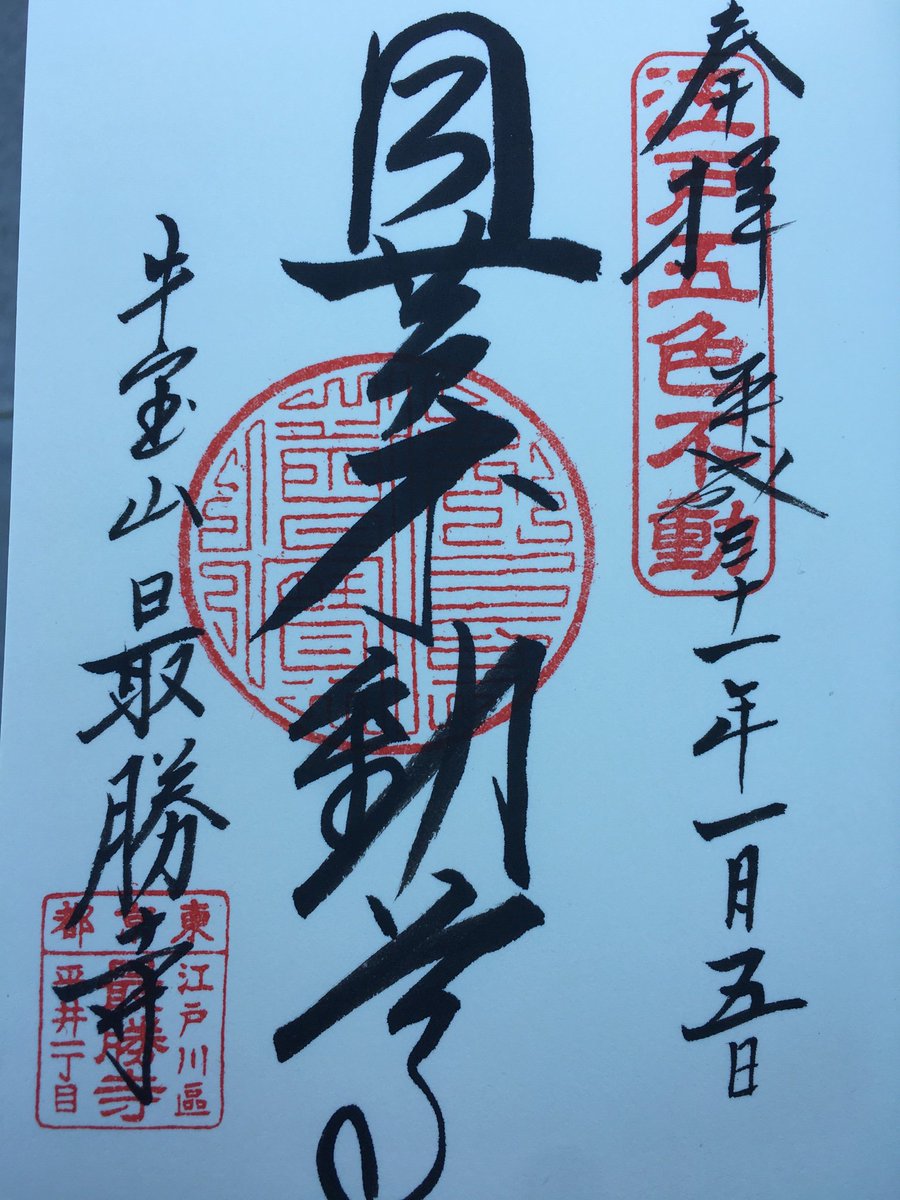 奉拝
江戸五色不動
平成三十一年一月五日
目黄不動尊
牛宝山最勝寺
東京都
江戸川區
最勝寺
平井一丁目